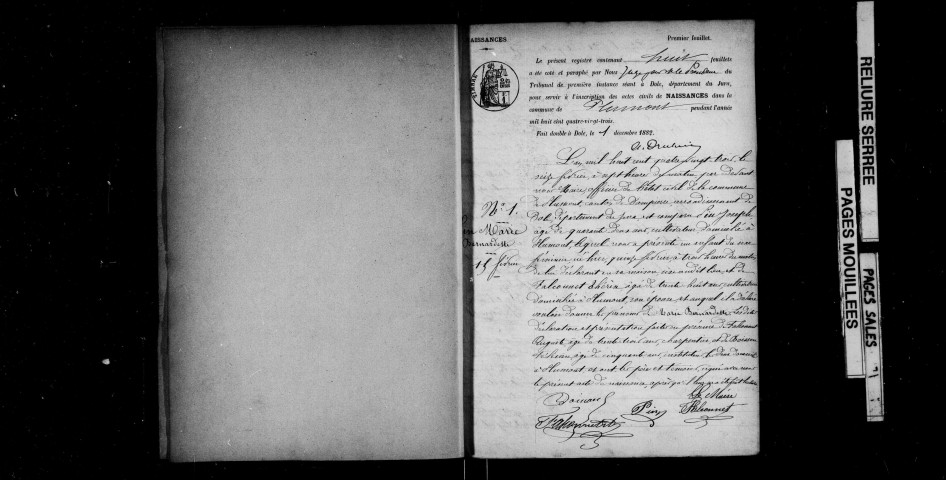 NAISSANCES.
Premier feuillet.
Le présent registre contenant huit feuillets
a été coté et paraphé par Nous Juge pour le Président du
Tribunal de première instance séant à Dole, département du Jura,
pour servir à l'inscription des actes civils de NAISSANCES dans la
commune de Plumont pendant l'année
mil huit cent quatre-vingt-trois.
Fait double à Dole, le 1 décembre 1882.
N° 1.
Marie
Bernardette
15 février
L'an mil huit cent quatre vingt trois, le
seize février, à sept heures du matin, par devant
nous Maire, officier de l'état civil de la commune
de Plumont, canton de Dampierre, arrondissement de
Dole, département du Jura, est comparu Pin Joseph
âgé de quarante deux ans, cultivateur domicilié à
Plumont, lequel nous a présenté un enfant du sexe
féminin, né hier, quinze février, à trois heures du matin
de lui déclarant en sa maison sise audit lieu, et de
Falconnet âgée de trente huit ans, cultivatrice
domiciliée à Plumont, son épouse, et auquel il a déclaré
vouloir donner le prénom de Marie Bernardette. Lesdites
déclaration et présentation faites en présence de Falconnet
Auguste, âgé de trente trois ans, charpentier, et de
âgé de cinquante ans, instituteur, les deux domiciliés
à Plumont, et ont les père et témoins, signé avec nous
le présent acte de naissance, après qu'il leur en a été fait lecture
Le Maire
Pin
Falconnet
RELIURE SERREE
PAGES MOUILLEES
PAGES SALES